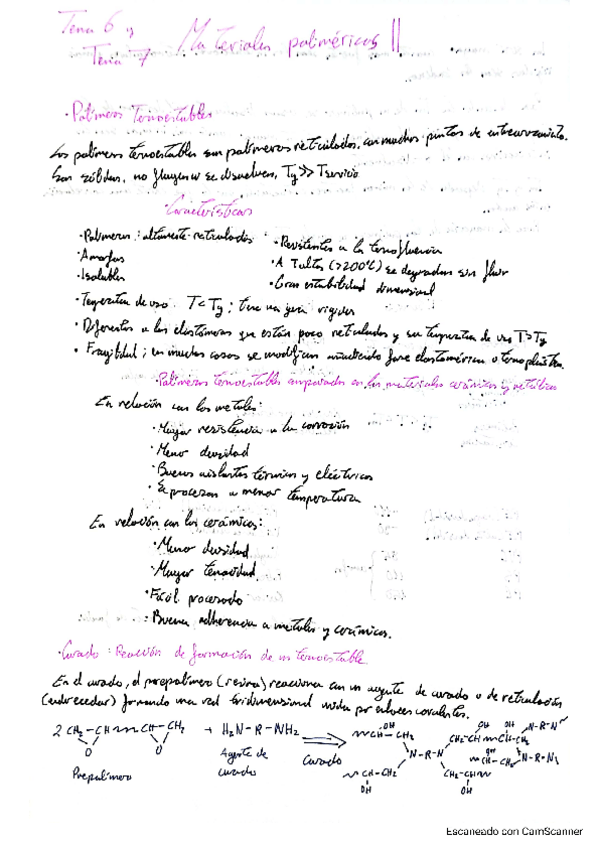 Tema 6 y
Tema 7
Materiales poliméricos II
· Polímeros Termoestables
Los polímeros termoestables son polímeros reticulados, con muchos puntos de entrecruzamiento.
Son sólidos, no fluyen ni se disuelven, Tg >> Tservicio
· Características
· Polímeros altamente reticulados
· Amorfos
· Insolubles
· Resistentes a la termofluencia
· A T altas (>200ºC) se degradan sin fluir
· Gran estabilidad dimensional
· Temperatura de uso T < Tg ; tiene una gran rigidez
· Diferentes a los elastómeros que están poco reticulados y su temperatura de uso T > Tg
· Fragilidad ; en muchos casos se modifican añadiendo fase elastomérica o termoplástica.
· Polímeros termoestables comparados con los materiales cerámicos y metálicos
En relación con los metales:
· Mayor resistencia a la corrosión
· Menor densidad
· Buenos aislantes térmicos y eléctricos
· Se procesan a menor temperatura
En relación con los cerámicos:
· Menor densidad
· Mayor tenacidad
· Fácil procesado
· Buena adherencia a metales y cerámicos.
· Curado : Reacción de formación de un termoestable
En el curado, el prepolímero (resina) reacciona con un agente de curado o de reticulación
(endurecedor) formando una red tridimensional unida por enlaces covalentes.
2 CH2 - CH - CH - CH2 + H2N - R - NH2
O O
Prepolímero
Agente de
curado
Curado
OH
CH - CH2
N - R - N
CH - CH2
OH
CH2 - CH
OH
CH - CH2
N - R - N
CH2 - CH
OH
Escaneado con CamScanner